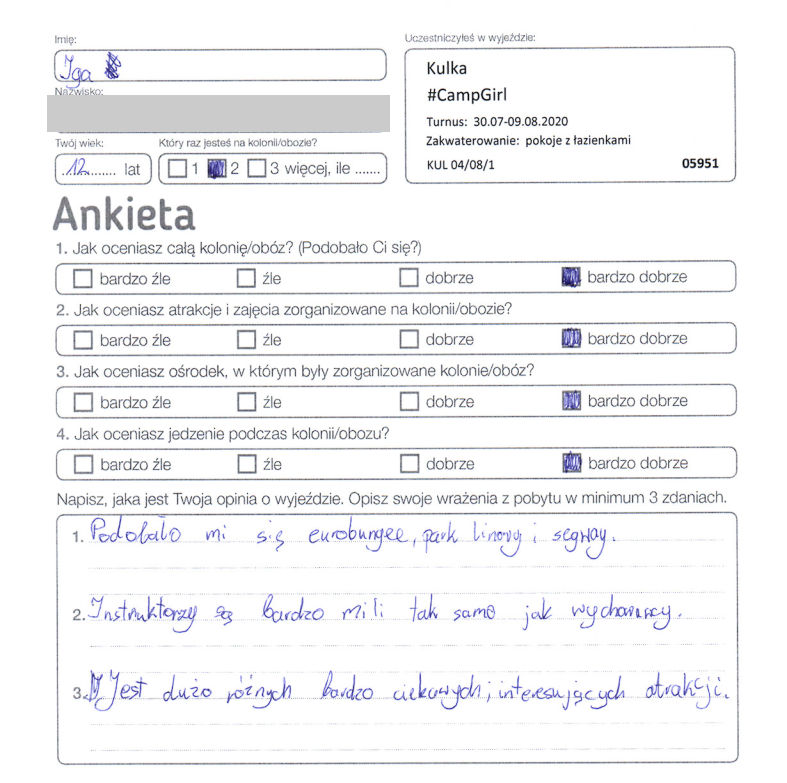 Imię:
Iga
Nazwisko:
Twój wiek:
12 lat
Który raz jesteś na kolonii/obozie?
1 2 3 więcej, ile .......
Uczestniczyłeś w wyjeździe:
Kulka
#CampGirl
Turnus: 30.07-09.08.2020
Zakwaterowanie: pokoje z łazienkami
KUL 04/08/1 05951
Ankieta
1. Jak oceniasz całą kolonię/obóz? (Podobało Ci się?)
bardzo źle źle dobrze bardzo dobrze
2. Jak oceniasz atrakcje i zajęcia zorganizowane na kolonii/obozie?
bardzo źle źle dobrze bardzo dobrze
3. Jak oceniasz ośrodek, w którym były zorganizowane kolonie/obóz?
bardzo źle źle dobrze bardzo dobrze
4. Jak oceniasz jedzenie podczas kolonii/obozu?
bardzo źle źle dobrze bardzo dobrze
Napisz, jaka jest Twoja opinia o wyjeździe. Opisz swoje wrażenia z pobytu w minimum 3 zdaniach.
1. Podobało mi się eurobungee, park linowy i segway.
2. Instruktorzy są bardzo mili tak samo jak wychowawcy.
3. Jest dużo różnych bardzo ciekawych, interesujących atrakcji.